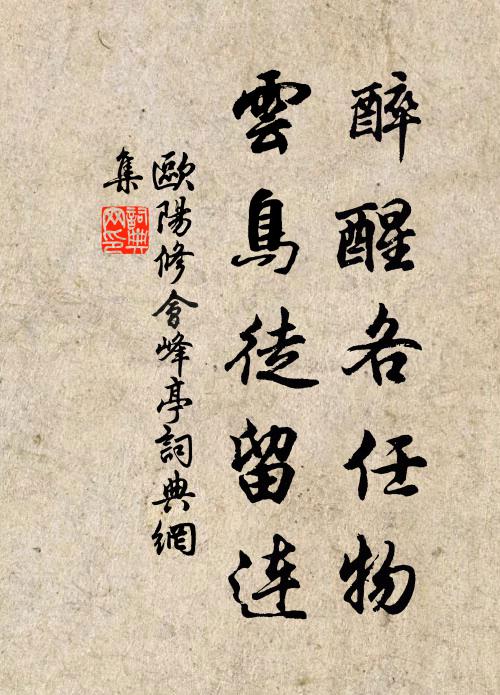 醉醒各任物
雲鳥徒留連
歐陽修會峰亭詞典網
集
詞典
网印